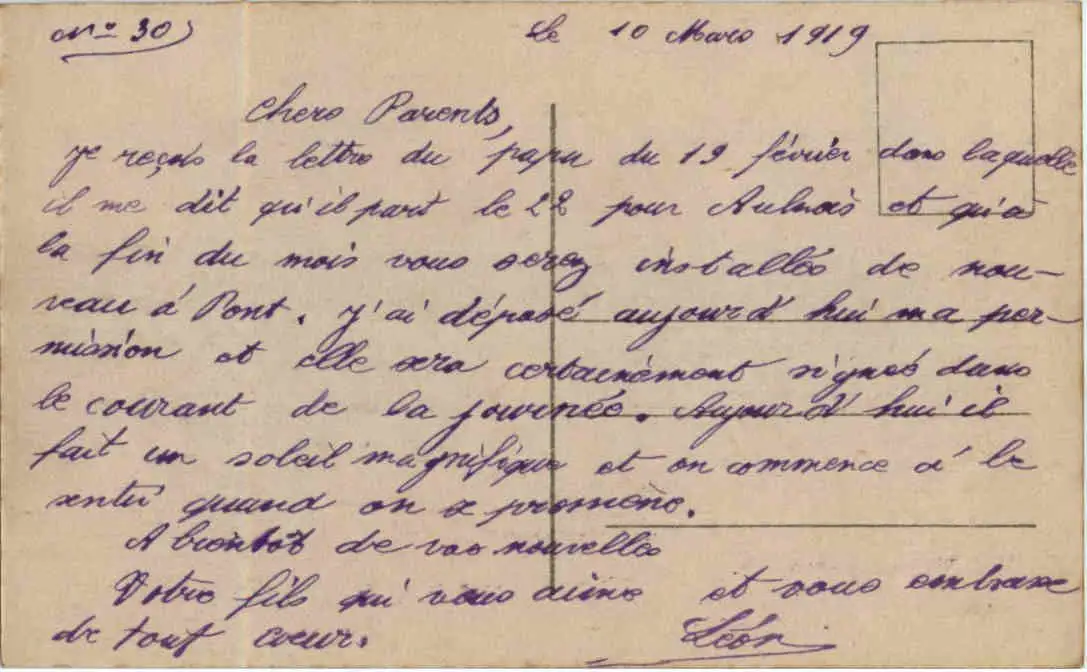 N° 30
Le 10 Mars 1919
Chers Parents,
je reçois la lettre du papa du 19 février dans laquelle
il me dit qu'il part le 22 pour Aulnois et qu'à
la fin du mois vous serez installés de nou-
veau à Pont. J'ai déposé aujourd'hui ma per-
mission et elle sera certainement signée dans
le courant de la journée. Aujourd'hui il
fait un soleil magnifique et on commence à le
sentir quand on se promène.
A bientôt de vos nouvelles
Votre fils qui vous aime et vous embrasse
de tout cœur.
Léon